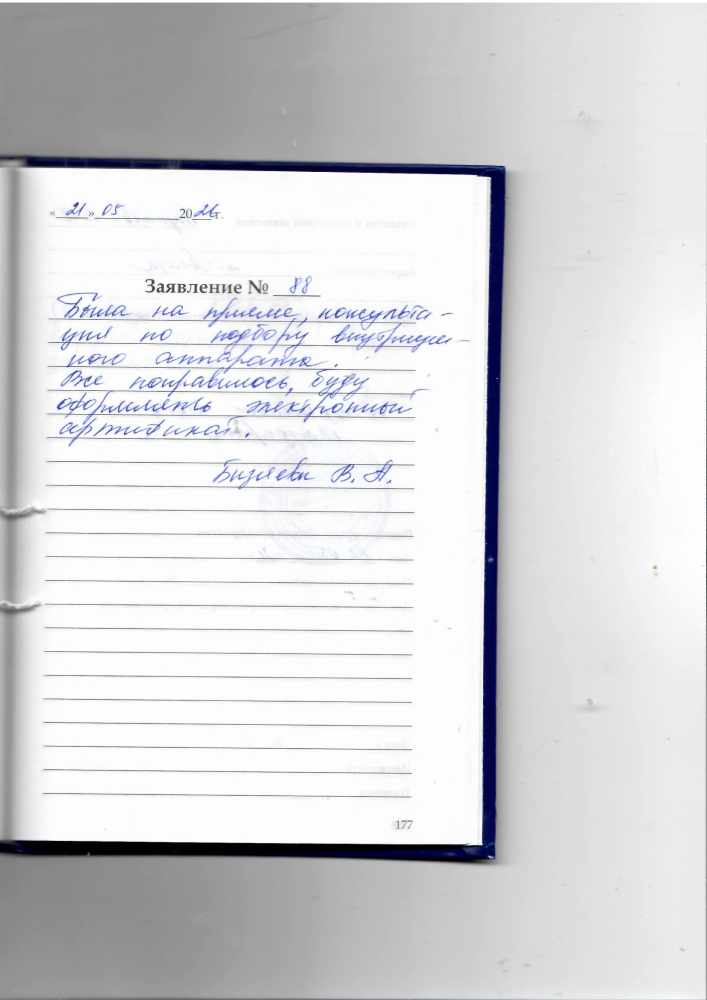 «21» 05 2026г.
Заявление № 88
Была на приеме, консульта-
ция по подбору внутриуш-
ного аппарата.
Все понравилось, буду
оформлять электронный
сертификат.
В. А.
177